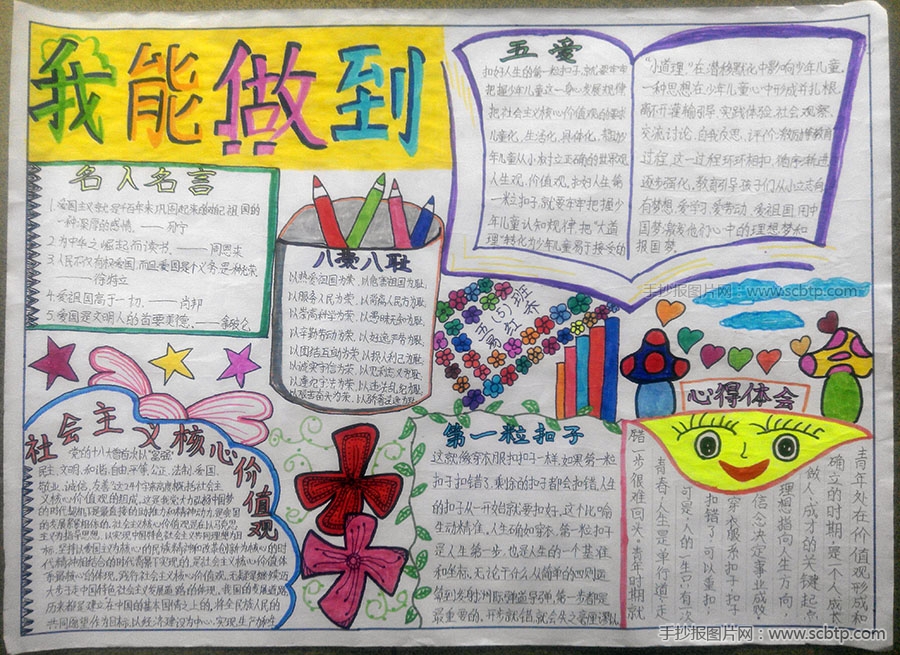 我能做到
名人名言
1.爱国主义就是千百年来巩固起来的对自己祖国的
一种深厚的感情。——列宁
2.为中华之崛起而读书。——周恩来
3.人民不仅有权爱国,而且爱国是个义务,是一种光荣。
——徐特立
4.爱祖国高于一切。——肖邦
5.爱国是文明人的首要美德。——拿破仑
八荣八耻
以热爱祖国为荣、以危害祖国为耻,
以服务人民为荣、以背离人民为耻,
以崇尚科学为荣、以愚昧无知为耻,
以辛勤劳动为荣、以好逸恶劳为耻,
以团结互助为荣、以损人利己为耻,
以诚实守信为荣、以见利忘义为耻,
以遵纪守法为荣、以违法乱纪为耻,
以艰苦奋斗为荣、以骄奢淫逸为耻
五爱
扣好人生的第一粒扣子,就要牢牢
把握少年儿童这一身心发展规律
把社会主义核心价值观的要求
儿童化、生活化、具体化,帮助少
年儿童从小树立正确的世界观
人生观、价值观。扣好人生第
一粒扣子,就要牢牢把握少
年儿童认知规律,把“大道
理”转化为少年儿童易于接受的
“小道理”,在潜移默化中影响少年儿童。
一种思想在少年儿童心中形成并扎根,
离不开灌输引导、实践体验、社会观察、
交流讨论、自我反思、评价激励等教育
过程,这一过程环环相扣,循序渐进
逐步强化,教育引导孩子们从小立志向、
有梦想,爱学习、爱劳动、爱祖国,用中
国梦激发他们心中的理想梦和
报国梦。
手抄报图片网:www.scbtp.com
五(5)班
社会主义核心价值观
党的十八大首次以“富强
民主、文明、和谐、自由、平等、公正、法制、爱国、
敬业、诚信、友善”这24个字来高度概括社会主
义核心价值观的组成。这是我党才为弘扬中国梦
的时代契机下是最直接的助推力和精神动力,是我国
的发展离不开的。社会主义核心价值观是在以马克思
主义为指导思想、以实现中国特色社会主义共同理想为目
标、坚持以爱国主义为核心的民族精神和以改革创新为核心的时
代精神相结合的时代背景下实现的,是社会主义核心价值体
系最核心的体现。践行社会主义核心价值观,无疑是继续迈
大步子走中国特色社会主义发展道路的体现。我国的发展道路
历来都是建立在中国的基本国情之上的,将全民族人民的
共同愿望作为目标,以经济建设为中心,实现生产力和
第一粒扣子
这就像穿衣服扣扣子一样,如果第一粒
扣子扣错了,剩余的扣子都会扣错。人生
的扣子从一开始就要扣好。这个比喻
生动精准。人生确如穿衣,第一粒扣子
是人生第一步,也是人生的一个基准
和坐标。无论干什么,从简单的四则运
算到发射洲际弹道导弹,第一步都是
最重要的。开步就错,就会失之毫厘,谬以
心得体会
青年处在价值观形成和
确立的时期,是一个人成长
做人、成才的关键起点。
理想指向人生方向,
信念决定事业成败。
穿衣服系扣子,扣子
扣错了可以重扣,
可是人的一生只有一次
青春,人生是单行道,走
错一步很难回头。青年时期就
手抄报图片网:www.scbtp.com